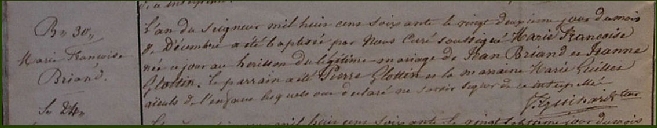 Bn 30,
Marie Françoise
Briand.
L'an du Seigneur mil huit cens soixante le vingt deuxieme jour du mois
de Décembre a été baptisée par Nous Curé soussigné Marie Françoise
née ce jour au hérisson du légitime mariage de Jean Briand et Jeanne
Glotin. Le parrain a été Pierre Glotin et la maraine Marie
de l'enfant lesquels ont declaré ne savoir signer de ce interpellé
mil huit cens soixante le vingt jour du mois